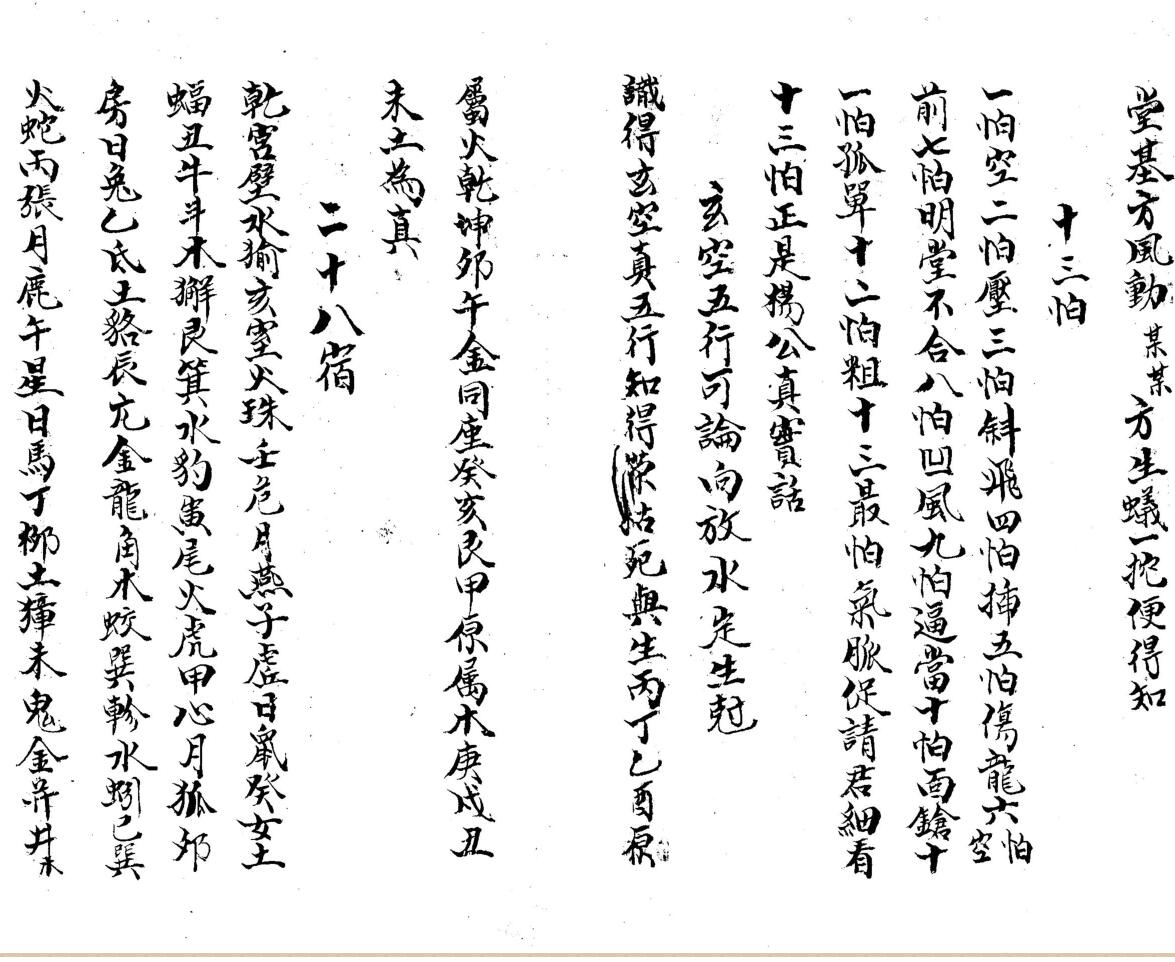 堂基方風動某某方生蟻一挖便得知
十三怕
一怕空二怕壓三怕斜飛四怕揷五怕傷龍六怕空
前七怕明堂不合八怕凹風九怕逼當十怕面鎗十
一怕孤單十二怕粗十三最怕氣脈促請君細看
十三怕正是楊公真實話
玄空五行可論向放水定生尅
識得玄空真五行知得榮枯死與生丙丁乙酉原
屬火乾坤卯午金同座癸亥艮甲原属木庚戌丑
未土為真
二十八宿
乾宮壁水㺄亥室火珠壬危月燕子虛日鼠癸女土
蝠丑牛斗木獬艮箕水豹寅尾火虎甲心月狐卯
房日兔乙氐土貉辰亢金龍角木蛟巽軫水蚓巳巽
火蛇丙張月鹿午星日馬丁柳土獐未鬼金羊井木